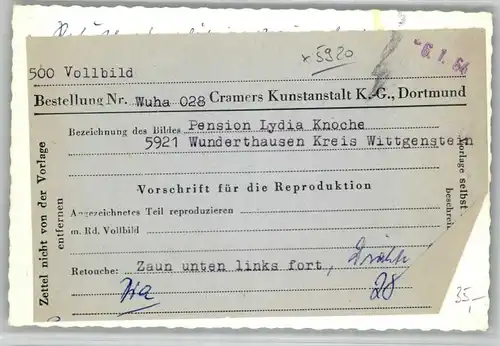 x 5920
-6.1.64
500 Vollbild
Bestellung Nr. Wuha 028 Cramers Kunstanstalt K.G., Dortmund
Bezeichnung des Bildes Pension Lydia Knoche
5921 Wunderthausen Kreis Wittgenstein
Vorschrift für die Reproduktion
Angezeichnetes Teil reproduzieren
m. Rd. Vollbild
Retouche: Zaun unten links fort,
28
35,-
Zettel nicht von der Vorlage
entfernen
Vorlage selbst
beschreib